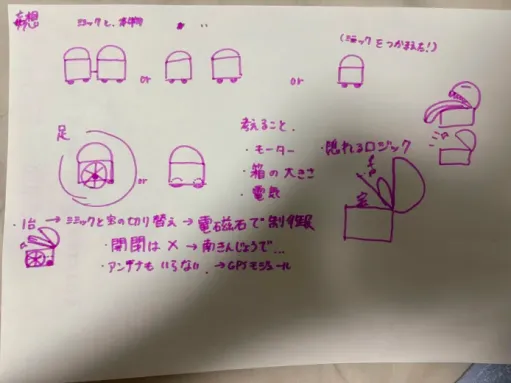 妄想
ミミックと、本物
い
(ミミックをつかまえろ!)
or
or
足
or
考えること、
・モーター
・箱の大きさ
・電気
・隠れるロジック
宝
・1台→ミミックと宝の切り替え→電磁石で制御
・開閉は×→南きんじょうで…
・アンテナもいらない。→GPSモジュール